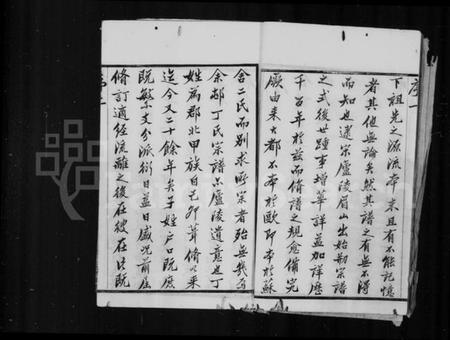 序一
下祖先之源流本末且有不能記憶
者其他無論矣然其譜之有無不得
而知也逮宗廬陵眉山出始剏宗譜
之式後世踵事增華詳益加詳歷
千百年於茲而脩譜之規愈備究
厥由來大都不本於歐即本於蘇
舍二氏而別求所宗者殆無幾焉
余鄰丁氏宗譜亦廬陵遺意也丁
姓為郡北甲族自己卯葺脩以來
迄今又二十餘年矣子姓戶口既庶
既繁支分派衍日益日盛況前屆
脩訂適經流離之後在搜在只既